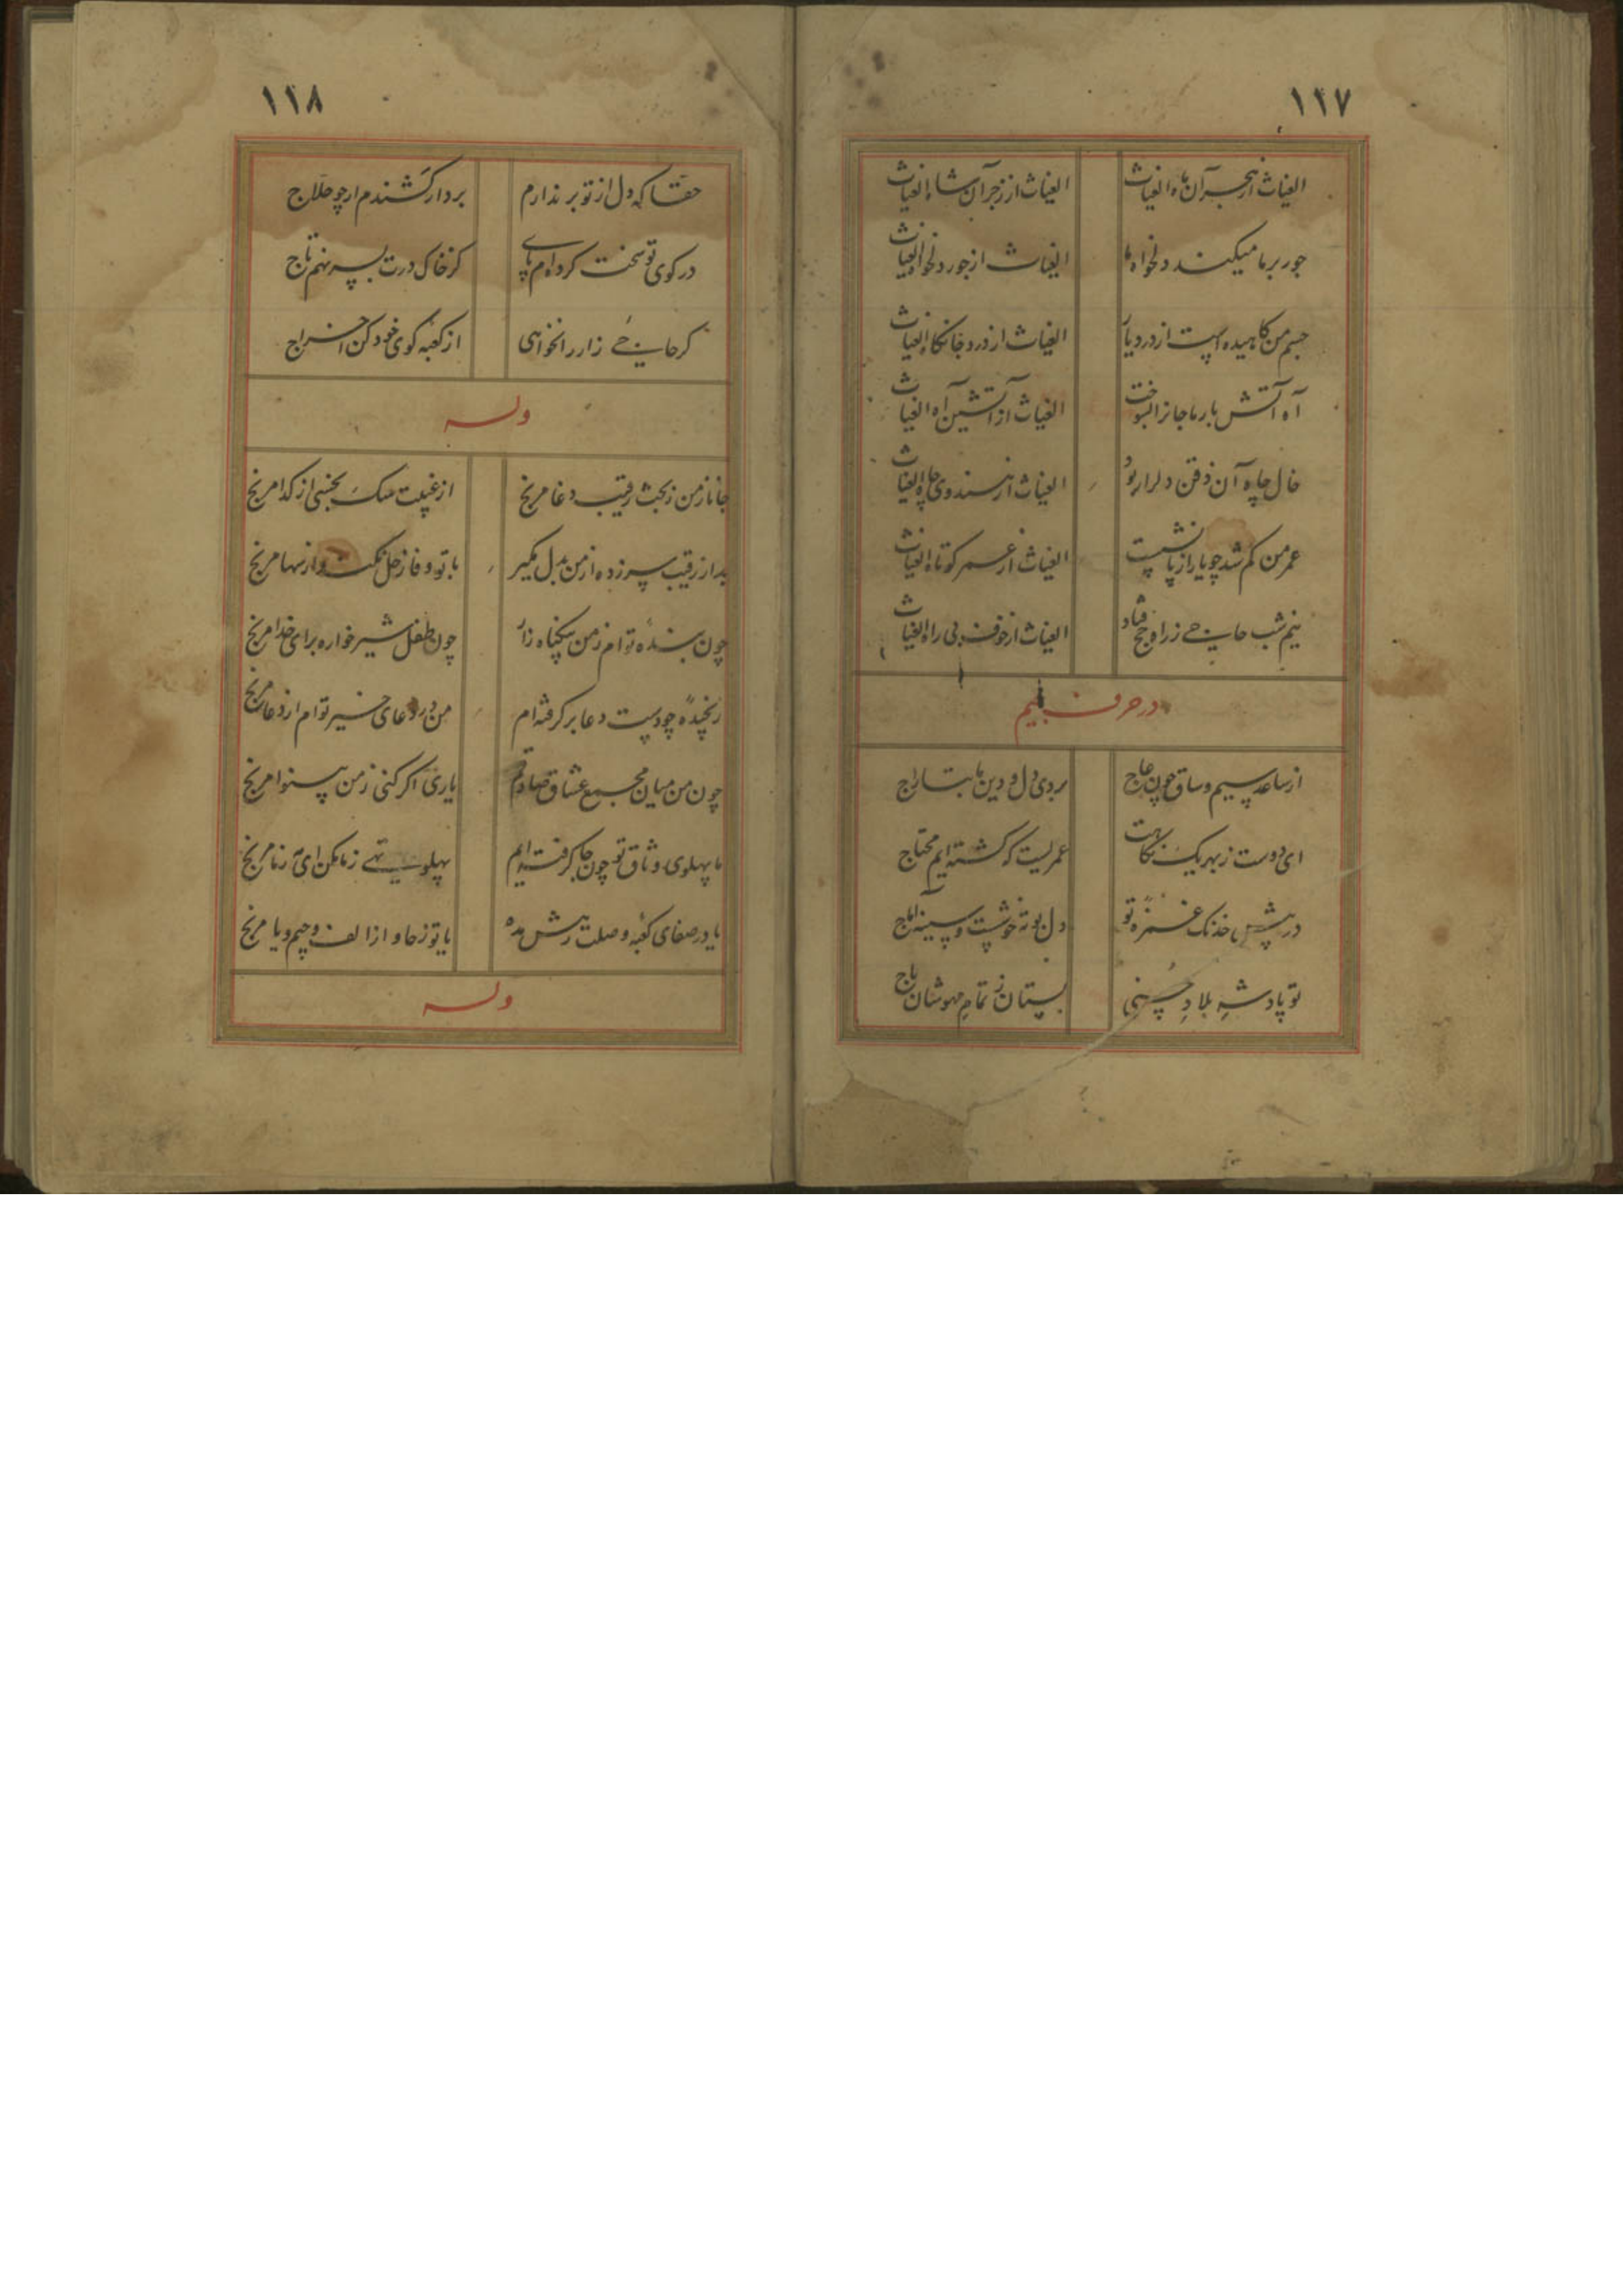 ١١٧
الغیاث از هجر آن ماه الغیاث
الغیاث از زجر آن شاه الغیاث
جور بر ما میکند دلخواه ما
الغیاث از جور دلخواه الغیاث
جسم من کاهیده است از درد یار
الغیاث از درد جانکاه الغیاث
آه آتش بار ما جانرا بسوخت
الغیاث از آتشین آه الغیاث
خال چاه آن ذقن دلرا ربود
الغیاث از هندوی چاه الغیاث
عمر من کم شد چو یار از پا نشست
الغیاث از عمر کوتاه الغیاث
نیم شب حاجی ز راه حج فتاد
الغیاث از خوف بی راه الغیاث
در حرف جیم
از ساعد سیم و ساق چون عاج
بردی دل و دین ما بتاراج
ای دوست ز بهر یک نگاهت
عمریست که گشته ایم محتاج
در پیش خدنک غمزه تو
دل بوته خوشست و سینه آماج
تو پادشه بلاد حسنی
بستان ز تمام مهوشان باج
١١٨
حقا که دل از تو بر ندارم
بر دار کشندم ار چو حلاج
در کوی تو سخت کرده ام پای
کز خاک درت بسر نهم تاج
کر حاجی زار را نخواهی
از کعبه کوی خود کن اخراج
وله
جانا ز من ز بحث رقیب دغا مرنج
از غیبت سک نجسی از کدا مرنج
بد از رقیب سر زده از من بدل مکیر
با تو وفا ز حل نکند و از سها مرنج
چون بنده توام ز من بیکناه زار
چون طفل شیر خواره برای خدا مرنج
رنجیده چو دست دعا بر کرفته ام
من در دعای خیر توام از دعا مرنج
چون من میان مجمع عشاق صادقم
یاری اکر کنی ز من بینوا مرنج
ما پهلوی وثاق تو چون جا کرفته ایم
پهلو تهی ز ما مکن ای مه ز ما مرنج
یا در صفای کعبه وصلت رهش مده
یا تو ز حا و از الف و جیم و یا مرنج
وله